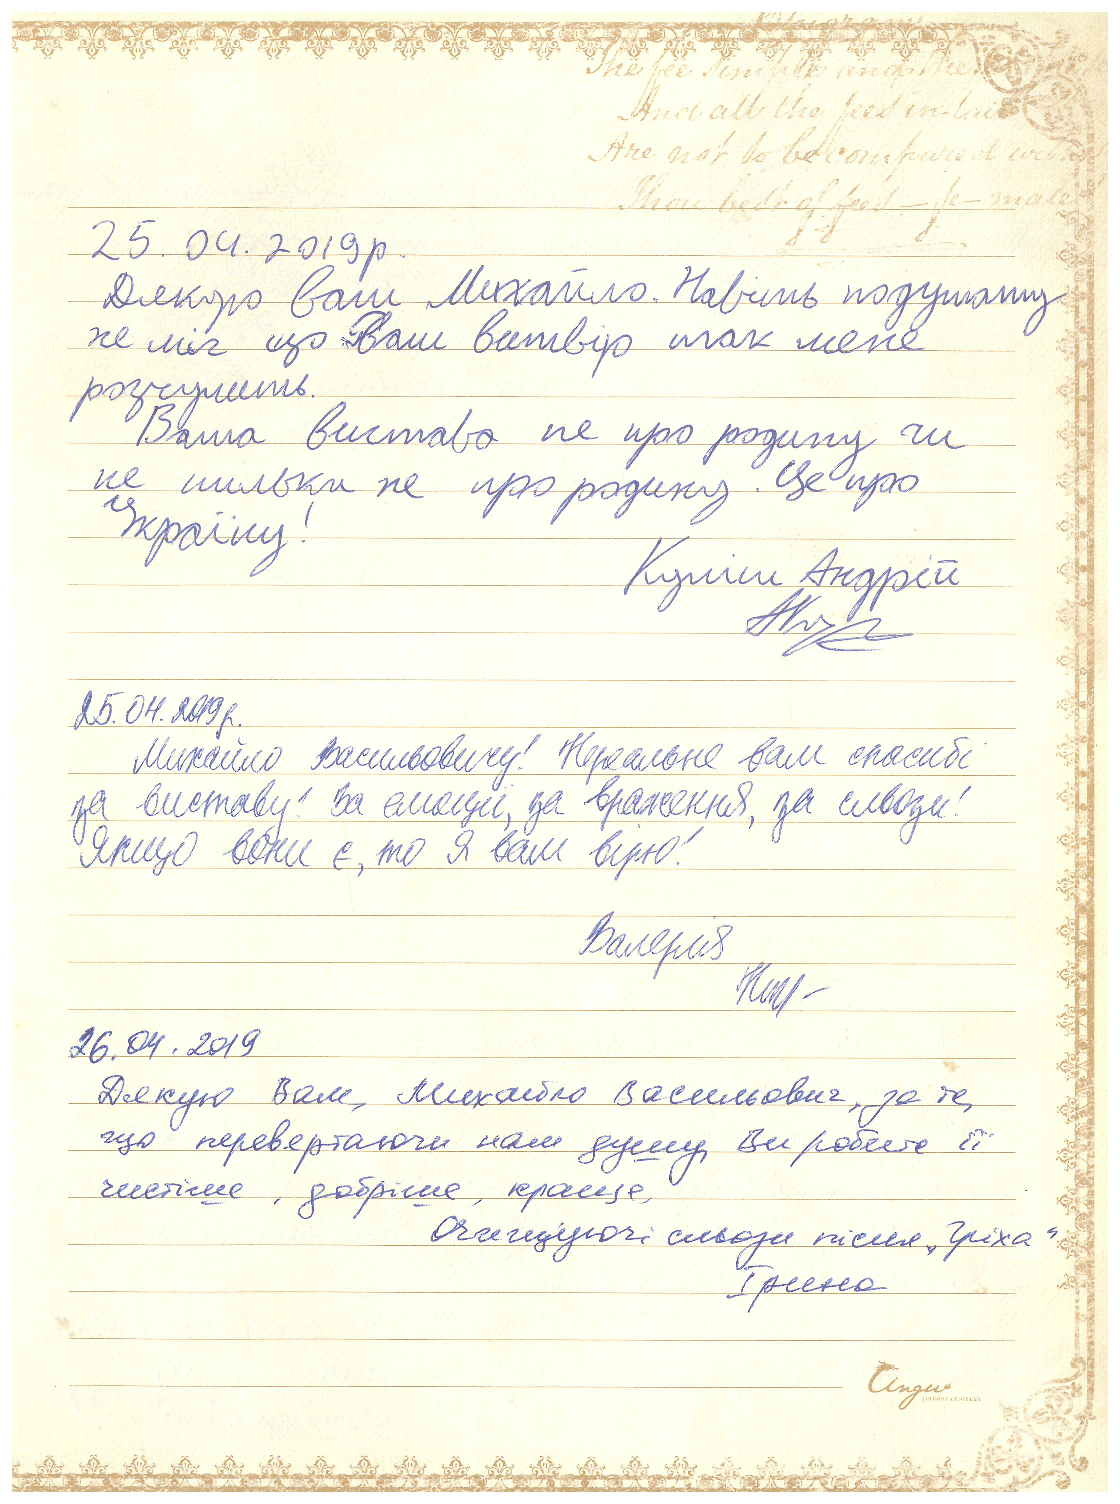 The fee simple and the
And all the feed in-tail
Are not to be compared with
Thou best of feed — fe-male
25.04.2019р.
Дякую Вам Михайло. Навіть подумати
не міг що Ваш витвір так мене
розчулить.
Ваша вистава не про родину чи
не тільки не про родину. Це про
Україну!
Андрій
25.04.2019р.
Михайло Васильовичу! Нереальне вам спасибі
за виставу! За емоції, за враження, за сльози!
Якщо вони є, то я вам вірю!
Валерія
26.04.2019
Дякую Вам, Михайло Васильович, за те,
що перевертаючи нам душу, Ви робите її
чистіше, добріше, краще.
Очищуючі сльози після „Гріха“
Ірина